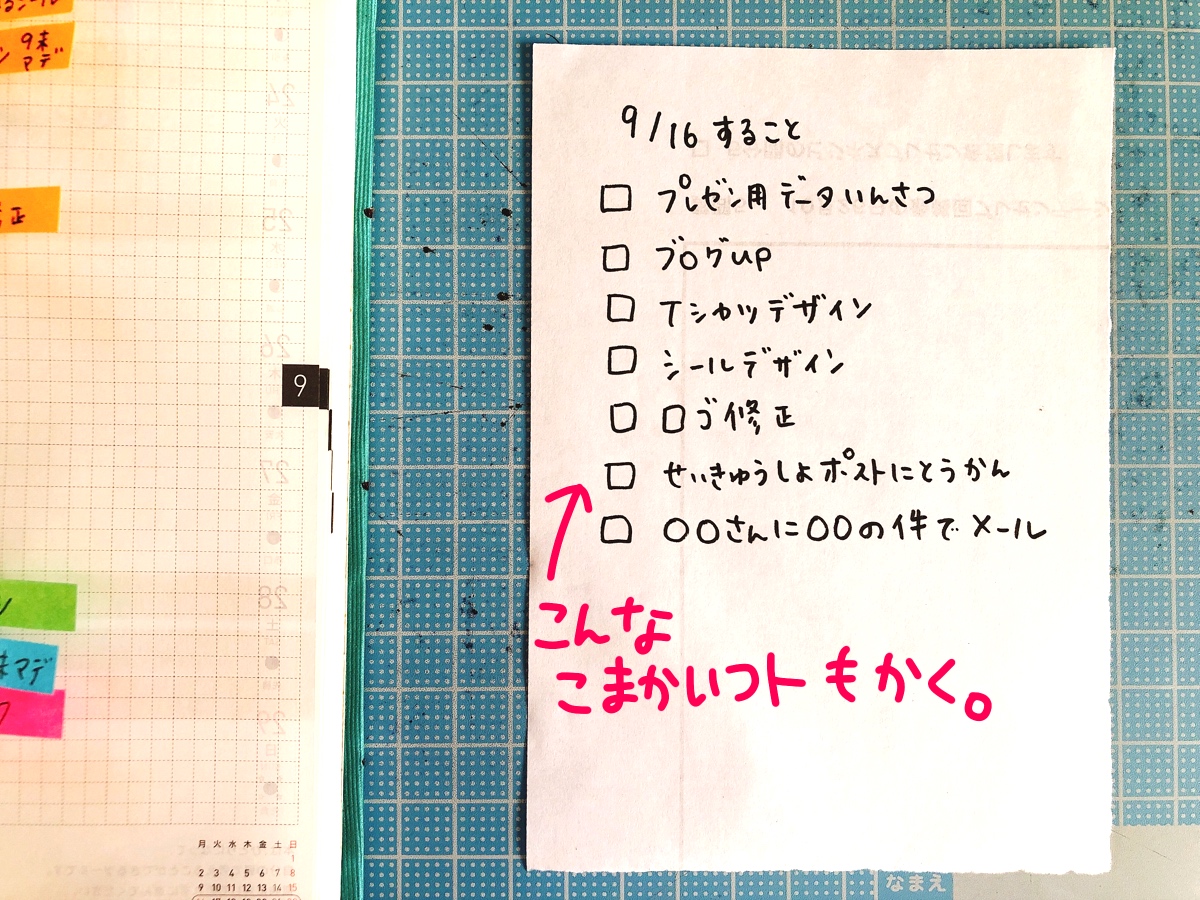 9末
マデ
正
24
25
26
9
27
28
土
29
末マデ
月 火 水 木 金 土 日
1
2 3 4 5 6 7 8
9 10 11 12 13 14 15
9/16 すること
□ プレゼン用データいんさつ
□ ブログup
□ Tシャツデザイン
□ シールデザイン
□ ロゴ修正
□ せいきゅうしょポストにとうかん
□ ○○さんに○○の件でメール
こんな
こまかいコトもかく。
なまえ